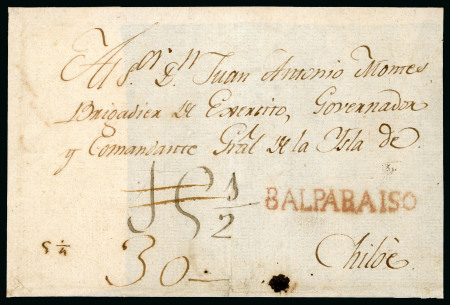 Al S.ⁿ D.ⁿ Juan Antonio Montes
Brigadier de Exercito, Governador
y Comandante Gral de la Isla de
15 1/2
BALPARAISO
30
Chiloè